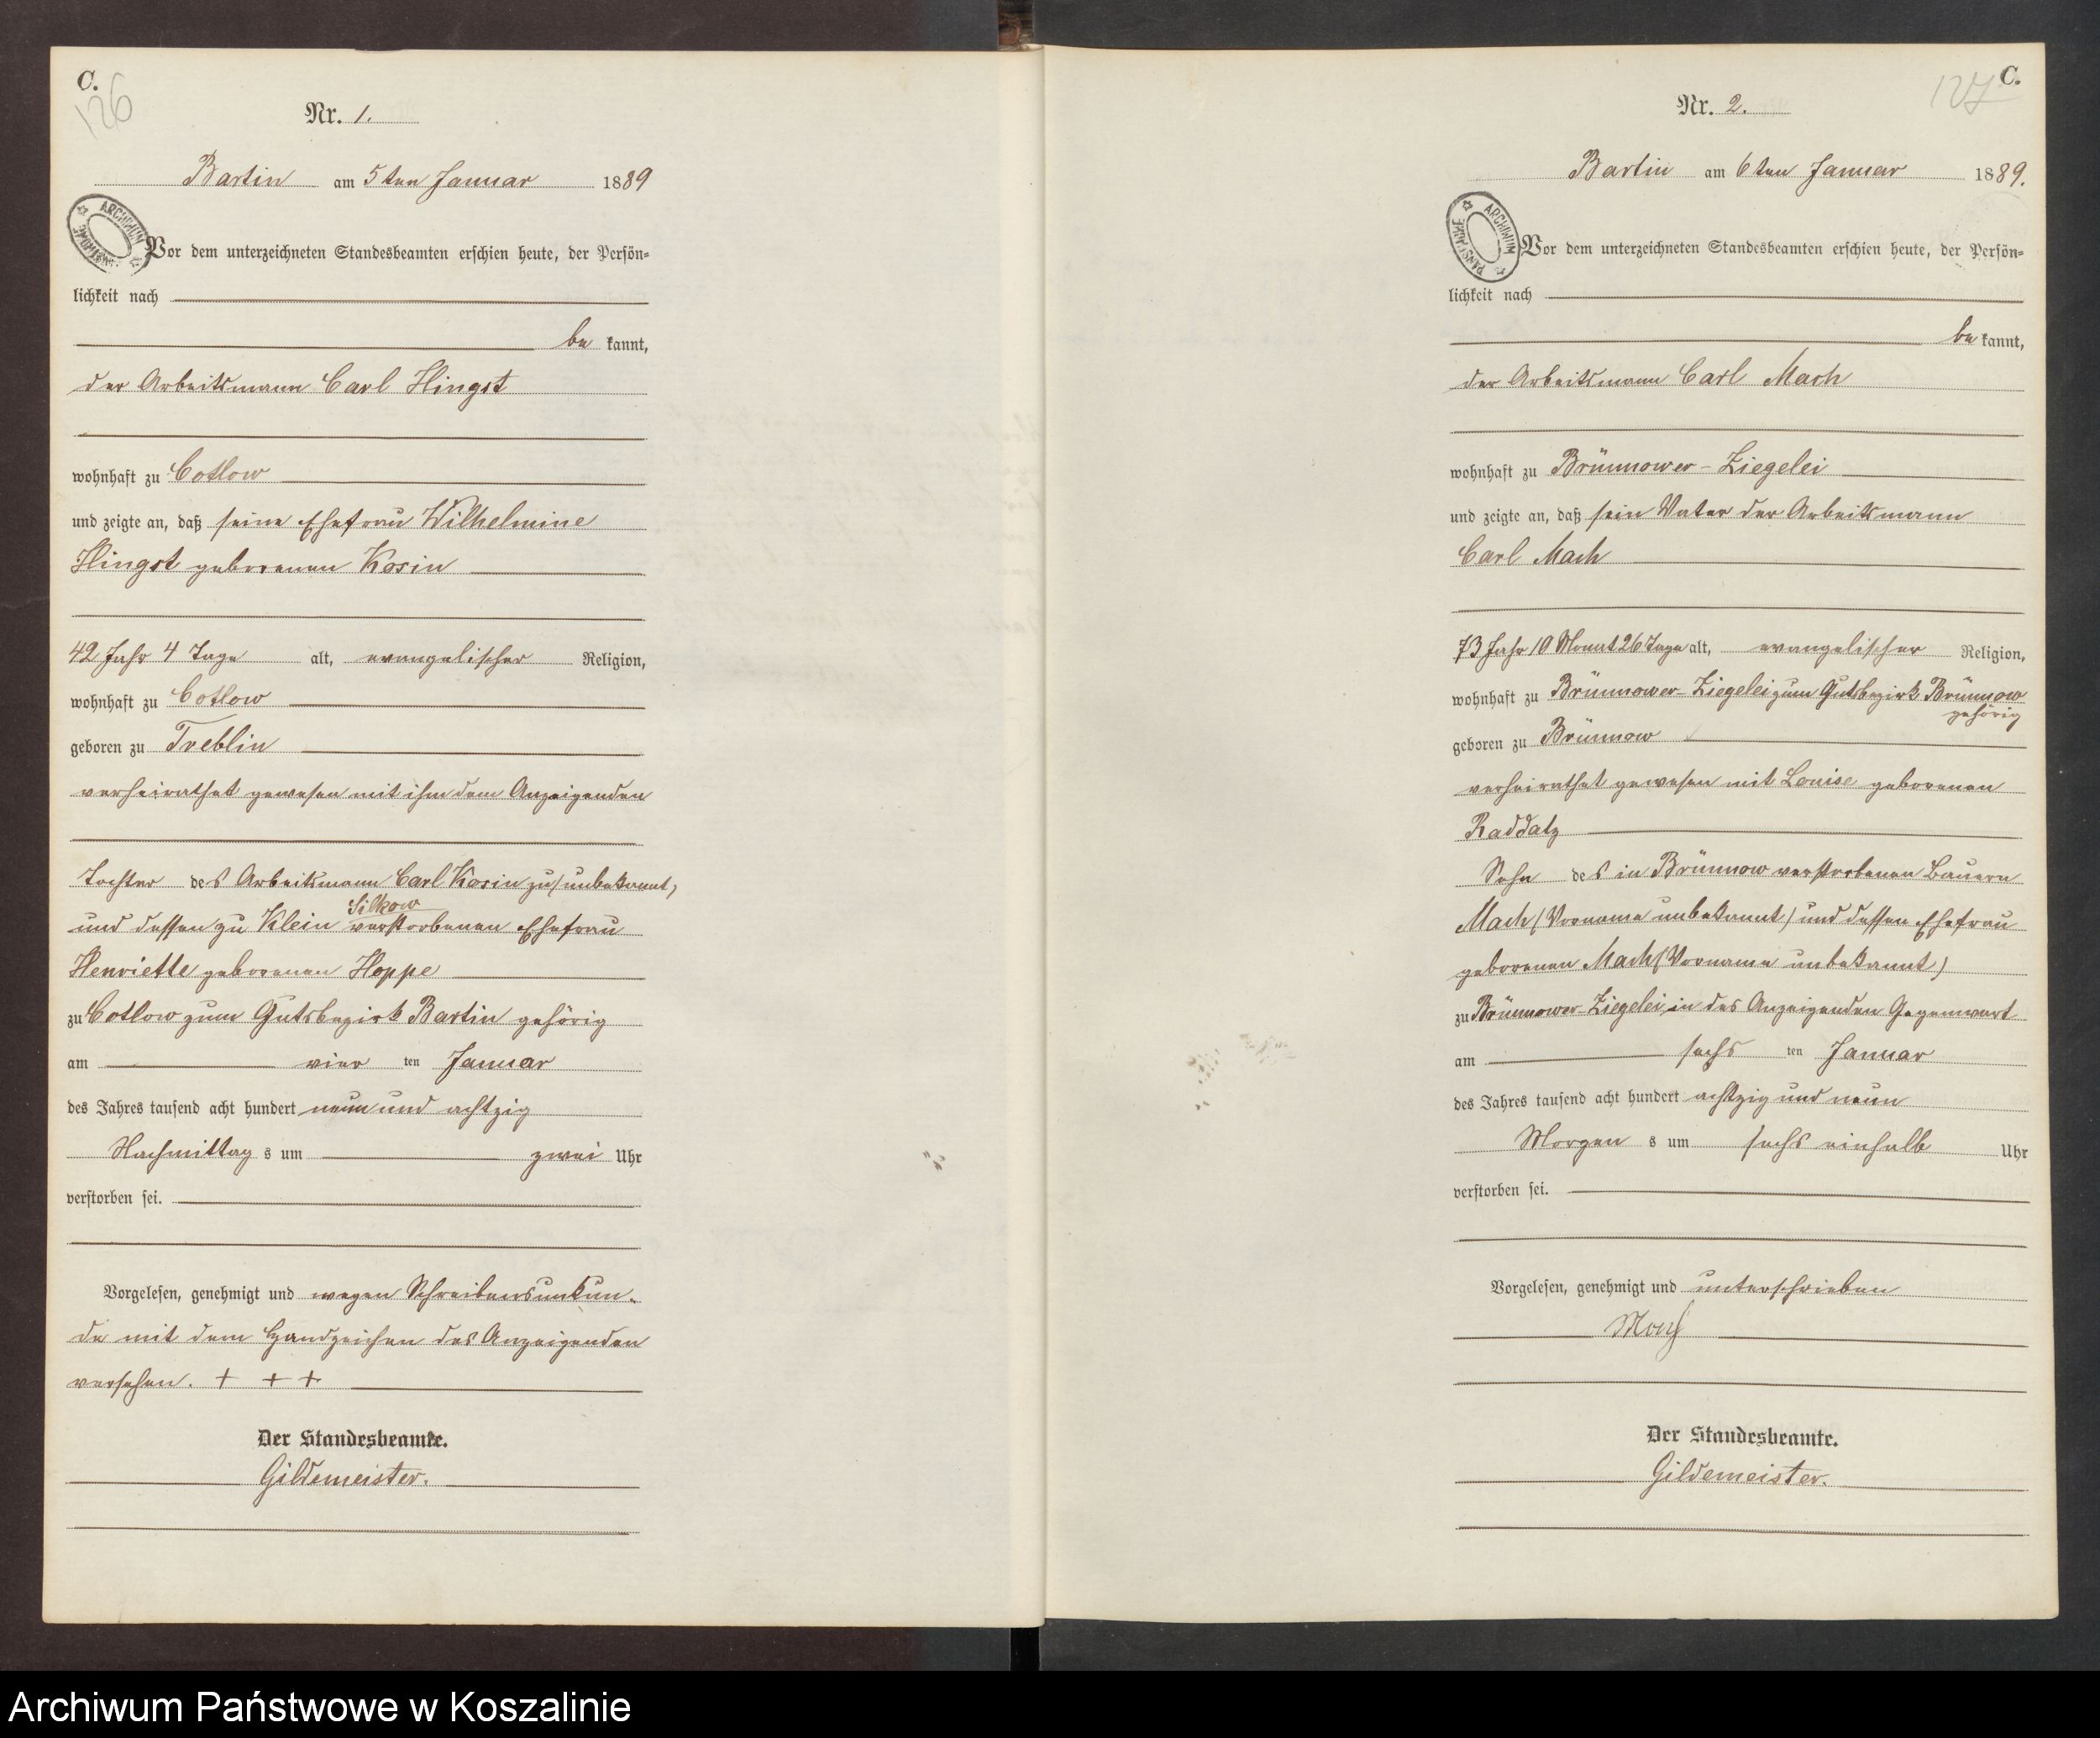 C.
126
Nr. 1.
Bartin am 5ten Januar 1889
ARCHIWUM
Vor dem unterzeichneten Standesbeamten erschien heute, der Persön-
lichkeit nach
be kannt,
der Arbeitsmann Carl Hingst
wohnhaft zu Cotlow
und zeigte an, daß seine Ehefrau Wilhelmine
Hingst geborenen Kosin
42 Jahr 4 Tage alt, evangelischer Religion,
wohnhaft zu Cotlow
geboren zu Treblin
verheirathet gewesen mit ihm dem Anzeigenden
Tochter des Arbeitsmann Carl Kosin zu (unbekannt)
Silkow
und dessen zu Klein verstorbenen Ehefrau
Henriette geborenen Hoppe
zu Cotlow zum Gutsbezirk Bartin gehörig
am vier ten Januar
des Jahres tausend acht hundert neun und achtzig
Nachmittag s um zwei Uhr
verstorben sei.
Vorgelesen, genehmigt und wegen Schreibensunkun-
de mit dem Handzeichen des Anzeigenden
versehen. + + +
Der Standesbeamte.
Gildemeister.
C.
127
Nr. 2.
Bartin am 6ten Januar 1889.
ARCHIWUM PAŃSTWOWE
Vor dem unterzeichneten Standesbeamten erschien heute, der Persön-
lichkeit nach
be kannt,
der Arbeitsmann Carl Mach
wohnhaft zu Brünnower-Ziegelei
und zeigte an, daß sein Vater der Arbeitsmann
Carl Mach
73 Jahr 10 Monat 26 Tage alt, evangelischer Religion,
wohnhaft zu Brünnower-Ziegelei zum Gutsbezirk Brünnow
gehörig
geboren zu Brünnow
verheirathet gewesen mit Louise geborenen
Raddatz
Sohn des in Brünnow verstorbenen Bauern
Mach (Vorname unbekannt) und dessen Ehefrau
geborenen Mach (Vorname unbekannt)
zu Brünnower-Ziegelei, in des Anzeigenden Gegenwart
am sechs ten Januar
des Jahres tausend acht hundert achtzig und neun
Morgen s um sechs einhalb Uhr
verstorben sei.
Vorgelesen, genehmigt und unterschrieben
Mach
Der Standesbeamte.
Gildemeister.
Archiwum Państwowe w Koszalinie